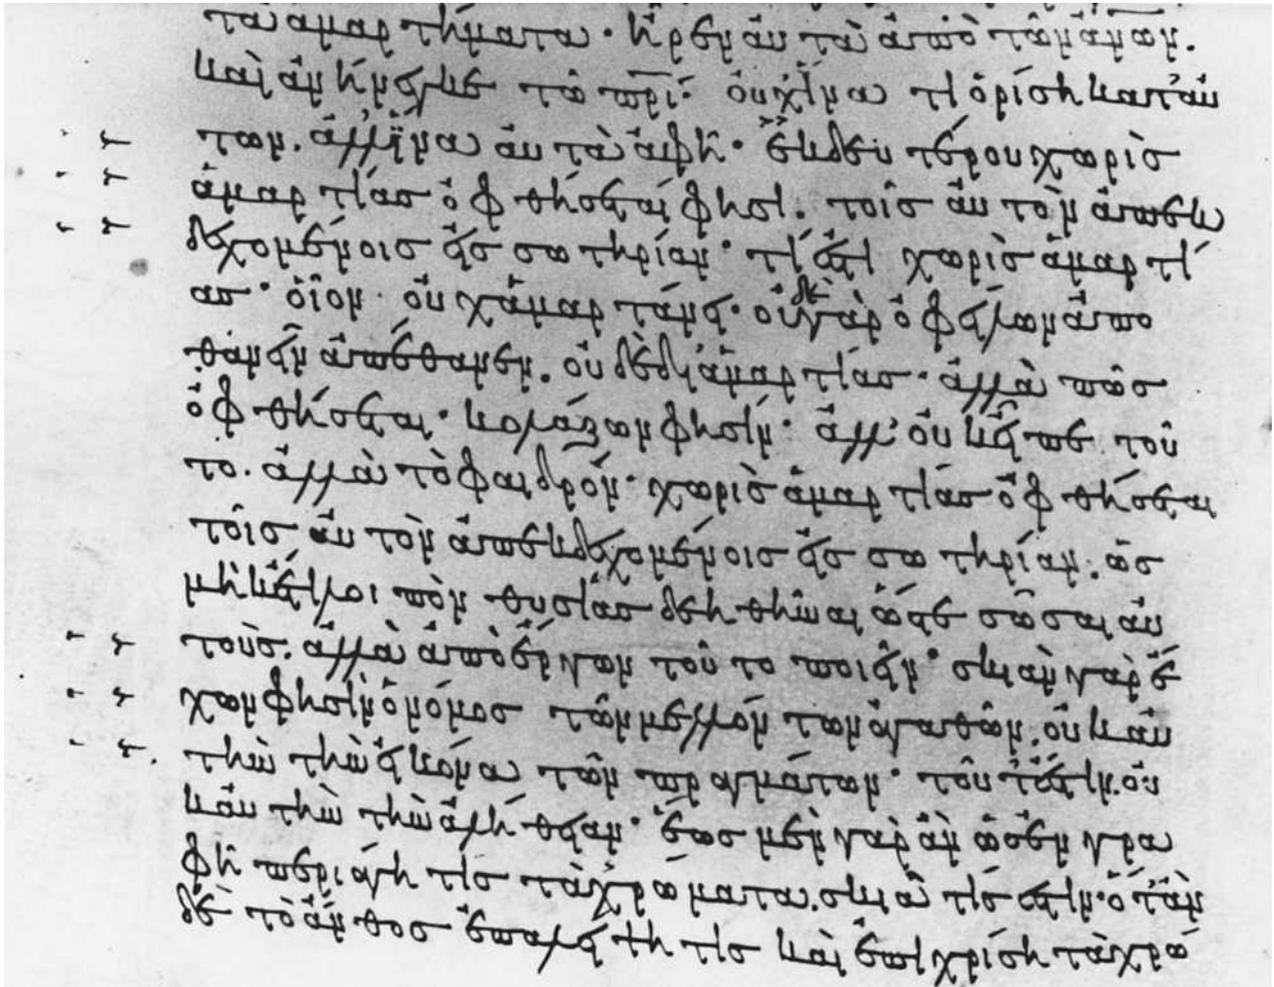 τὰ ἁμαρτήματα· ἦρεν αὐτὰ ἀπὸ τῶν ἀνων.
καὶ ἀνήνεγκε τῶ πρι· οὐχ ἵνα τί ὁρίση κατ' αὐ
των. ἀλλ' ἵνα αὐτὰ ἀφῆ· ἐκ δευτέρου χωρὶσ
ἁμαρτίασ ὀφθήσεται φησί. τοῖσ αὐτὸν ἀπεκ
δεχομένοισ εἰσ σωτηρίαν· τί ἐστι χωρὶσ ἁμαρτί
ασ· οἷον οὐχ ἁμαρτάνει· οὐδὲ γὰρ ὀφείλων ἀπο
θανεῖν ἀπέθανεν. οὐδὲ δι' ἁμαρτίασ· ἀλλὰ πῶσ
ὀφθήσεται· κολάζων φησίν· ἀλλ' οὐκ εἶπε τοῦ
το. ἀλλὰ τὸ φαιδρόν· χωρὶσ ἁμαρτίασ ὀφθήσεται
τοῖσ αὐτὸν ἀπεκδεχομένοισ εἰσ σωτηρίαν. ὡσ
μηκέτι λοιπὸν θυσίασ δεηθῆναι ὥστε σῶσαι αὐ
τοὺσ. ἀλλὰ ἀπὸ ἔργων τοῦτο ποιεῖν· σκιὰν γὰρ ἔ
χων φησιν ὁ νόμοσ τῶν μελλόντων ἀγαθῶν. οὐκ αὐ
τὴν τὴν εἰκόνα τῶν πραγμάτων· τουτέστιν. οὐ
κ αὐτὴν τὴν ἀλήθειαν· ἕωσ μὲν γὰρ ἂν ὡσ ἐν γρα
φῆ περιάγη τίσ τὰ χρώματα. σκιά τίσ ἐστιν. ὅταν
δὲ τὸ ἄνθοσ ἐπαλείψη τὶσ καὶ ἐπιχρίση τὰ χρώ